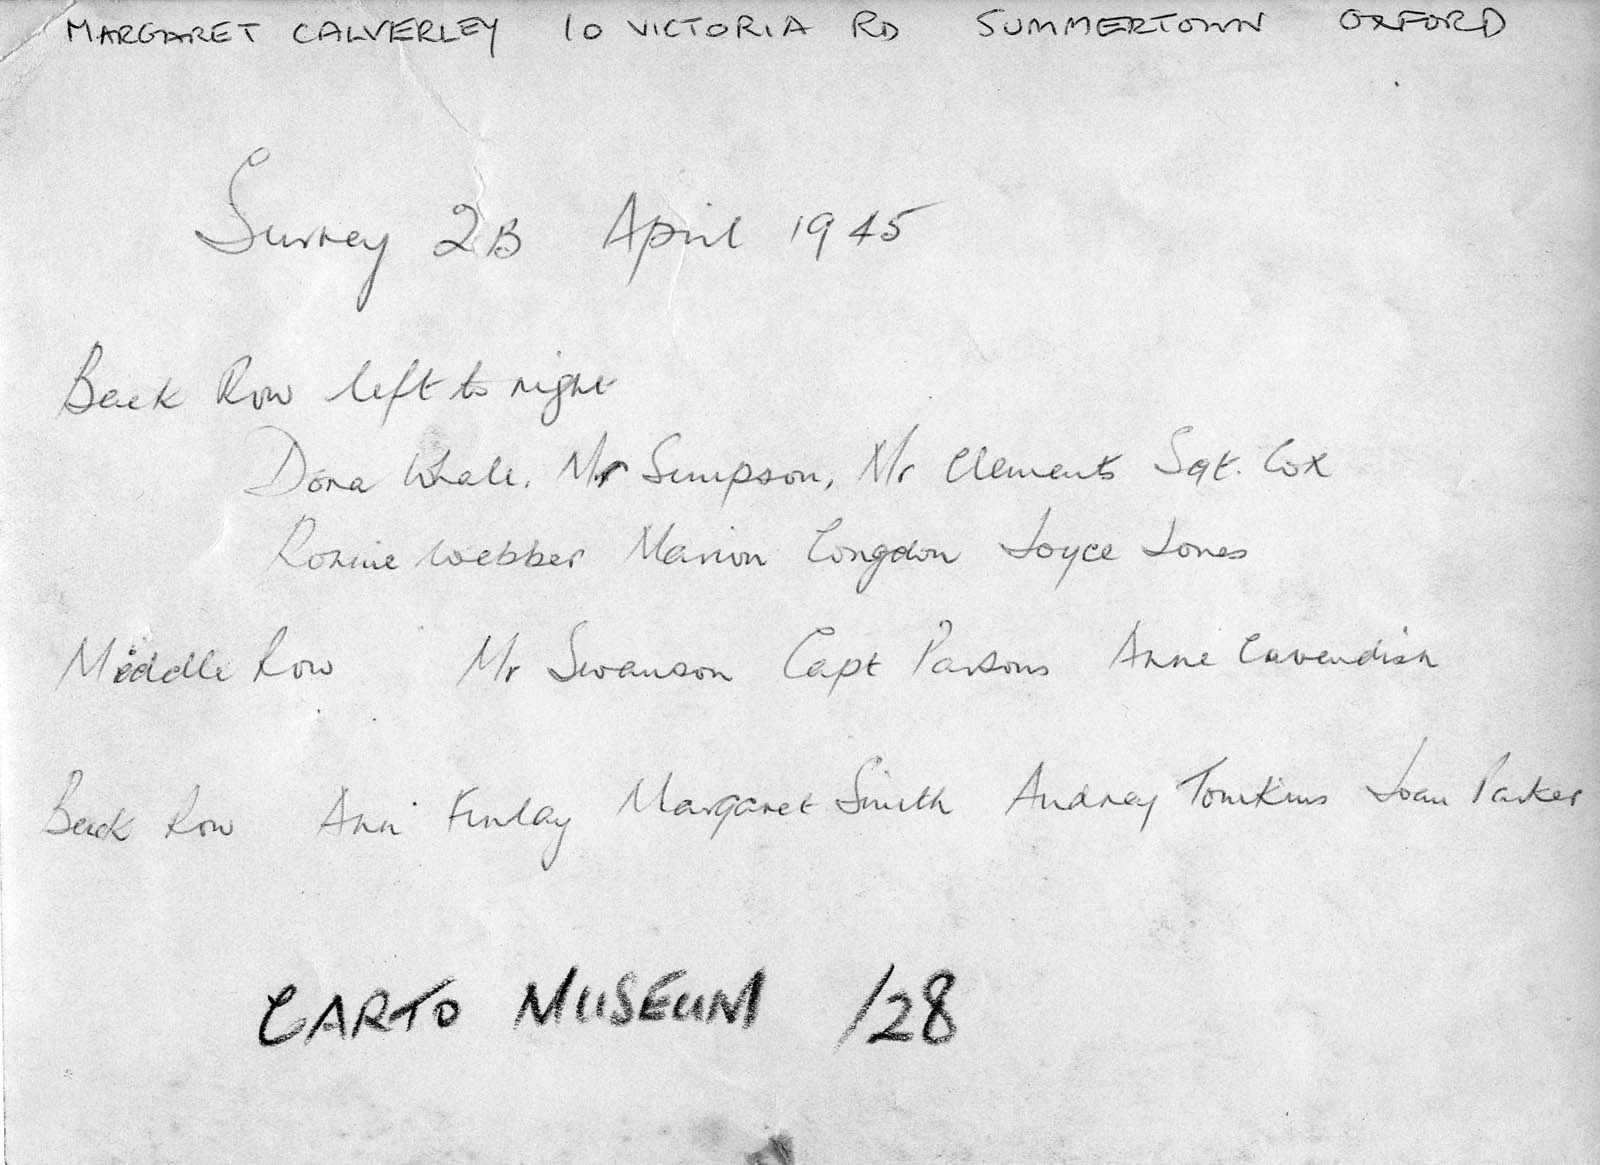 MARGARET CALVERLEY 10 VICTORIA RD SUMMERTOWN OXFORD
Survey 2B April 1945
Back Row left to right
Dora Whale. Mr Simpson, Mr Clements Sgt. Cox
Ronnie Webber Marion Congdon Joyce Jones
Middle Row Mr Swanson Capt Parsons Anne Cavendish
Back Row Ann Finlay Margaret Smith Audrey Tomkins Joan Parker
CARTO MUSEUM /28